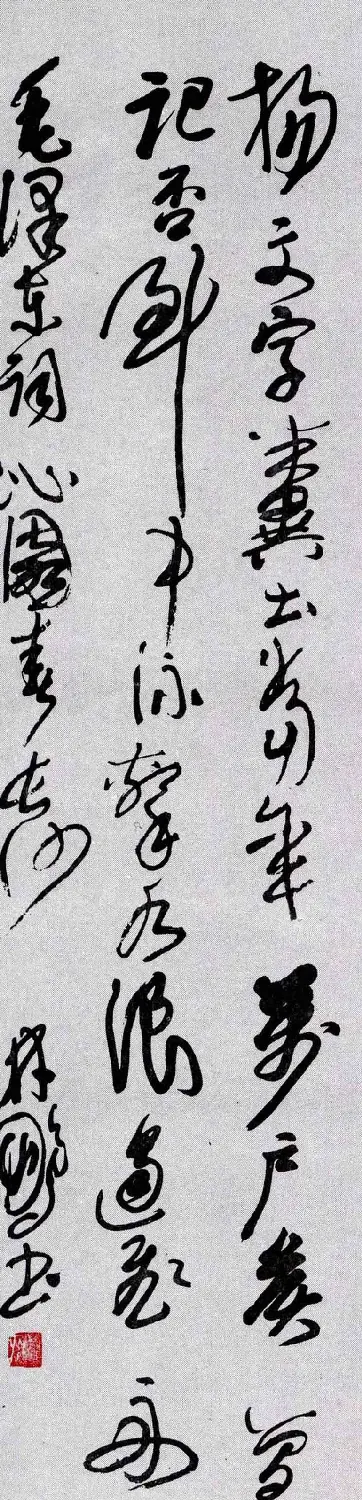 扬文字粪土当年万户矦曽
记否到中流击水浪遏飞舟
毛泽东词沁园春长沙 林鹏书